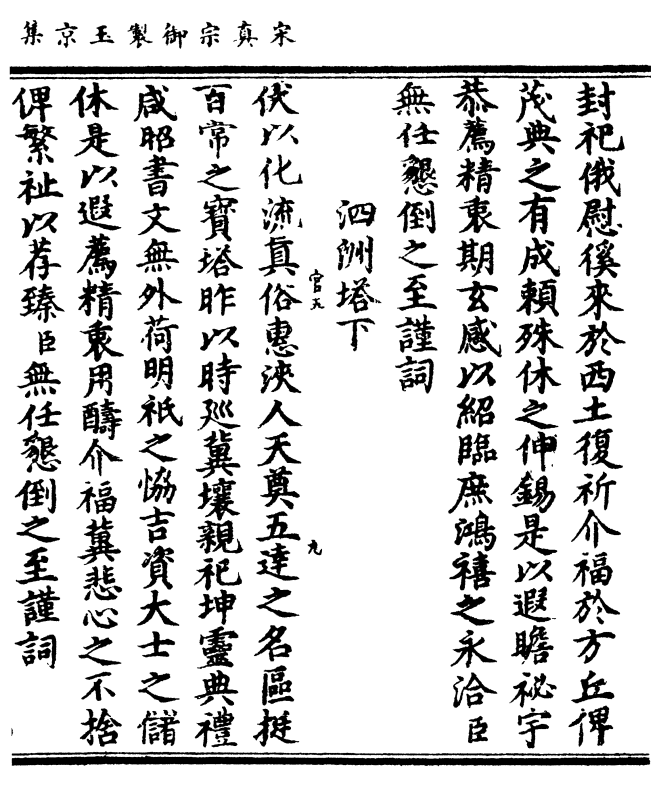 宋真宗御製玉京集
封祀俄慰徯來於西土復祈介福於方丘俾
茂典之有成賴殊休之伸錫是以遐瞻祕宇
恭薦精衷期玄感以紹臨庶鴻禧之永洽臣
無任懇倒之至謹詞
泗洲塔下
伏以化流真俗惠浹人天奠五達之名區挺
百常之寶塔昨以時廵冀壤親祀坤靈典禮
咸昭書文無外荷明祇之恊吉資大士之儲
休是以遐薦精衷用醻介福冀悲心之不捨
俾繁祉以荐臻臣無任懇倒之至謹詞